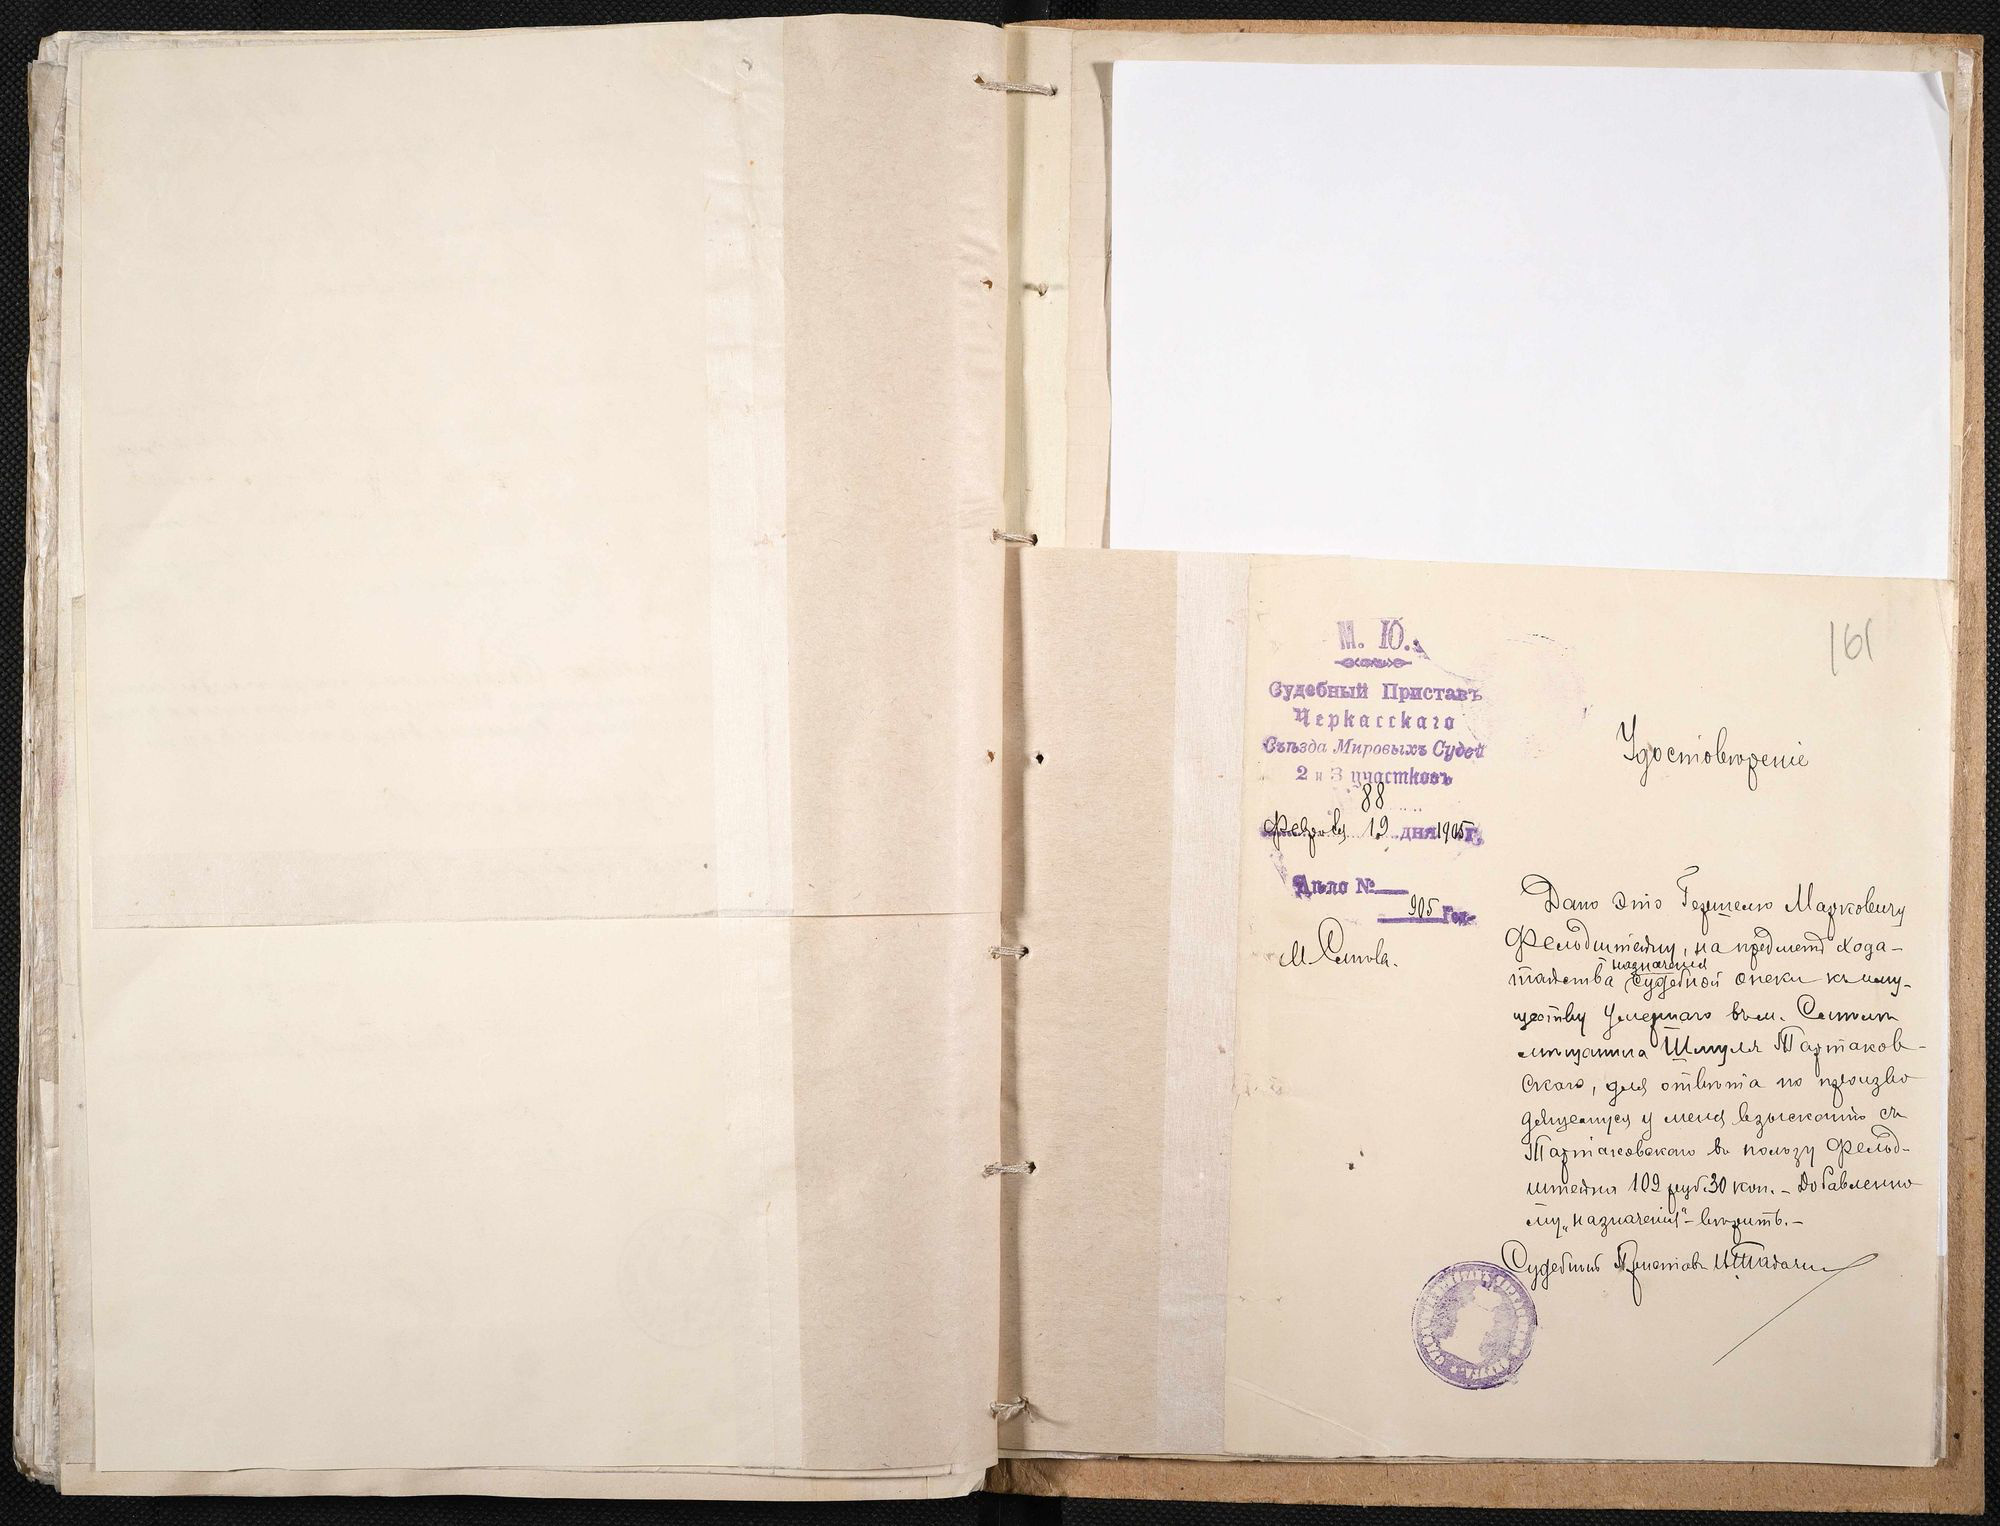 161
М. Ю.
Судебный Приставъ
Черкасскаго
Съѣзда Мировыхъ Судей
2 и 3 участковъ
88
Февраля 19 дня 1905 г.
Дѣло №
905 Год
М. Смѣла.
Удостовѣреніе
Дано это Гершелю Марковичу
Фельдштейну, на предметъ хода-
тайства назначенія судебной опеки къ иму-
ществу умершаго въ м. Смѣлѣ
мѣщанина Шмуля Тартаков-
скаго, для отвѣта по произво
дящемуся у меня взысканію съ
Тартаковскаго въ пользу Фельд-
штейна 109 руб 30 коп. - Добавленно
му „назначенія" - вѣрить. -
Судебный Приставъ